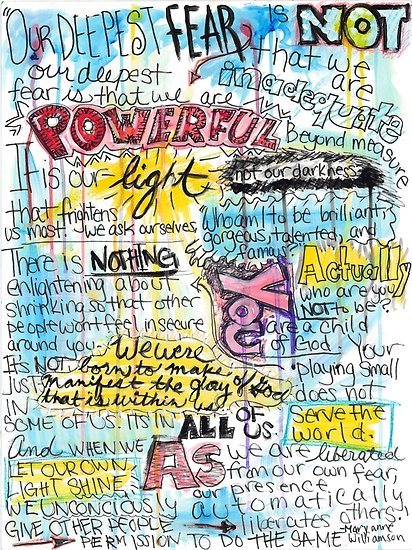 "OUR DEEPEST FEAR IS NOT
that we
are
inadequate
our deepest
fear is that we are
POWERFUL
Beyond measure
It is our light, not our darkness
that frightens
us most. we ask ourselves,
"Who am I to be brilliant,
gorgeous, talented, and
famous"
Actually
who are you
NOT to be?
YOU
are a child
of God.
Your
playing small
does not
Serve the
world.
There is NOTHING
enlightening about
shrinking so that other
people won't feel insecure
around you.
We were
born to make
manifest the glory of God
that is within us.
IT'S NOT
JUST
IN
SOME OF US. ITS IN ALL OF US.
And WHEN WE
LET OUR OWN
LIGHT SHINE,
WE UNCONSCIOUSLY
GIVE OTHER PEOPLE
PERMISSION TO DO THE SAME
AS we are liberated
from our own fear,
our presence
automatically
liberates others."
-Mary anne
Williamson